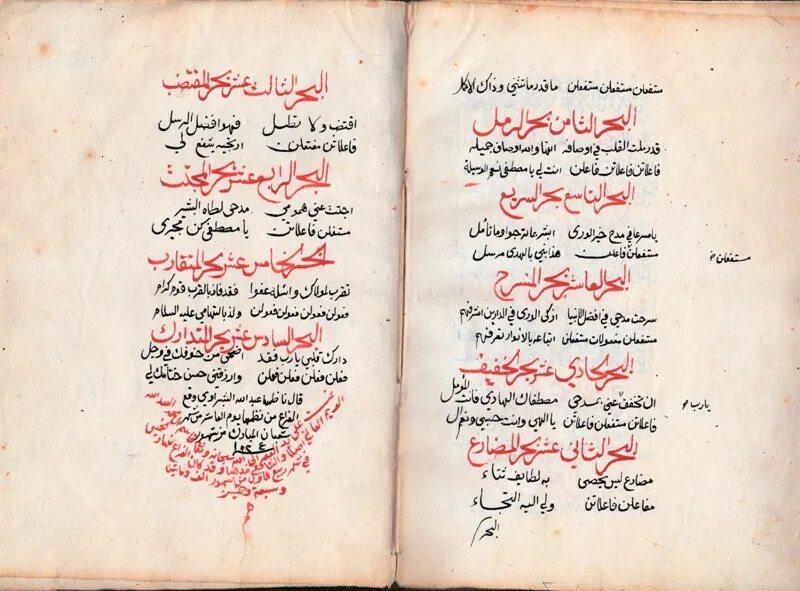 مستفعلن مستفعلن مستفعلن ما قدر ما تثني وذاك الاكمل
البحر الثامن بحر الرمل
قد رملت القلب في اوصافه انها والله اوصاف جميله
فاعلاتن فاعلاتن فاعلن انت لي يا مصطفى نعم الوسيلة
البحر التاسع بحر السريع
يا مسرعا في مدح خير الورى ابشر بما ترجو وما تأمل
مستفعلن فاعلن هذا نبي بالهدى مرسل
مستفعلن
البحر العاشر بحر المنسرح
سرحت مدحي في افضل الانبيا ازكى الورى في الدارين اشرفهم
مستفعلن مفعولات مستفعلن اتباعه بالانوار تعرفهم
البحر الحادي عشر بحر الخفيف
ان تخفف عني بمدحي مصطفاك الهادي فانت المؤمل
يا رب
فاعلاتن مستفعلن فاعلاتن يا الهي وانت حسبي ونعم ال
البحر الثاني عشر بحر المضارع
مضارع ليس يحصى به لطايف ثناء
مفاعلن فاعلاتن ولي اليه التجاء
البحر
البحر الثالث عشر بحر المقتضب
اقتضب ولا تطل فهو افضل الرسل
فاعلاتن مفتعلن ارتجيه يشفع لي
البحر الرابع عشر بحر المجتث
اجتث عني همومي مدحي لطاه البشير
مستفعلن فاعلاتن يا مصطفى كن مجيري
البحر الخامس عشر بحر المتقارب
تقرب لمولاك واسئله عفوا فقد فاز بالقرب قوم كرام
فعولن فعولن فعولن فعولن ولذ بالتهامي عليه السلام
البحر السادس عشر بحر المتدارك
دارك قلبي يا رب فقد اضحى من خوفك في وجل
فعلن فعلن فعلن فعلن وارزقني حسن ختامك لي
قال ناظمها عبدالله الشبراوي وقع
الفراغ من نظمها يوم العاشر من شهر
شعبان المبارك من شهور
في شهر ربيع من شهور الف وماتين